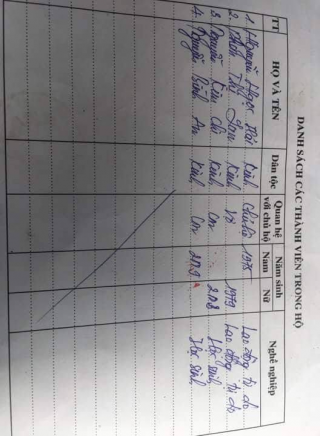 DANH SÁCH CÁC THÀNH VIÊN TRONG HỘ
TT HỌ VÀ TÊN Dân tộc Quan hệ với chủ hộ Năm sinh Nam Nữ Nghề nghiệp
1. Nguyễn Ngọc Hải Kinh Chủ hộ 1975 Lao động tự do
2. Thị Lan Kinh Vợ 1979 Lao động tự do
3. Nguyễn Chi Kinh Con 2008 Học sinh
4. Nguyễn Bình An Kinh Con Học sinh